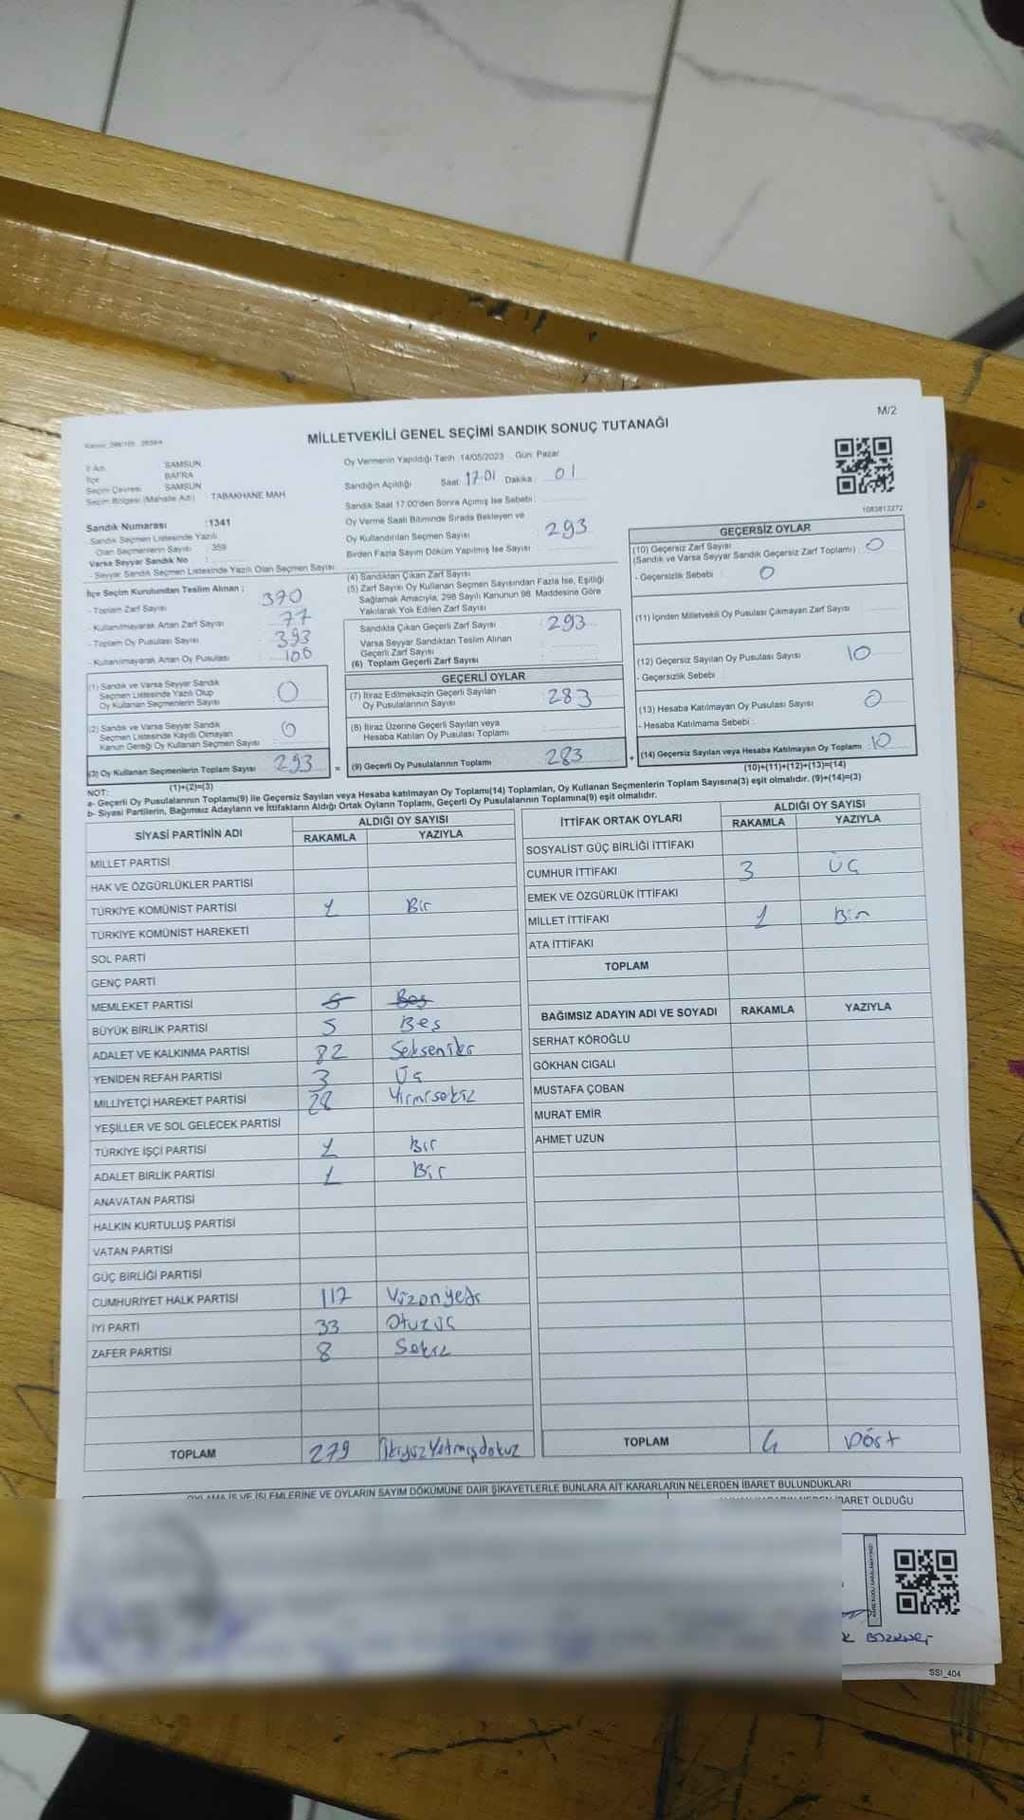 M/2
MİLLETVEKİLİ GENEL SEÇİMİ SANDIK SONUÇ TUTANAĞI
İl Adı SAMSUN
İlçe BAFRA
Seçim Çevresi SAMSUN
Seçim Bölgesi (Mahalle Adı) : TABAKHANE MAH
Sandık Numarası :1341
Sandık Seçmen Listesinde Yazılı
Olan Seçmenlerin Sayısı : 359
Varsa Seyyar Sandık No
- Seyyar Sandık Seçmen Listesinde Yazılı Olan Seçmen Sayısı
İlçe Seçim Kurulundan Teslim Alınan :
- Toplam Zarf Sayısı 370
- Kullanılmayarak Artan Zarf Sayısı 77
- Toplam Oy Pusulası Sayısı 393
- Kullanılmayarak Artan Oy Pusulası 100
(1) Sandık ve Varsa Seyyar Sandık
Seçmen Listesinde Yazılı Olup
Oy Kullanan Seçmenlerin Sayısı 0
(2) Sandık ve Varsa Seyyar Sandık
Seçmen Listesinde Kayıtlı Olmayan
Kanun Gereği Oy Kullanan Seçmen Sayısı 0
(3) Oy Kullanan Seçmenlerin Toplam Sayısı 293
(1)+(2)=(3)
Oy Vermenin Yapıldığı Tarih :14/05/2023 Gün: Pazar
Sandığın Açıldığı Saat 17.01 Dakika : 01
Sandık Saat 17.00'den Sonra Açımış İse Sebebi
Oy Verme Saati Bitiminde Sırada Bekleyen ve
Oy Kullandırılan Seçmen Sayısı 293
Birden Fazla Sayım Döküm Yapılmış İse Sayısı
(4) Sandıktan Çıkan Zarf Sayısı
(5) Zarf Sayısı Oy Kullanan Seçmen Sayısından Fazla İse, Eşitliği
Sağlamak Amacıyla, 298 Sayılı Kanunun 98. Maddesine Göre
Yakılarak Yok Edilen Zarf Sayısı
Sandıkta Çıkan Geçerli Zarf Sayısı 293
Varsa Seyyar Sandıktan Teslim Alınan
Geçerli Zarf Sayısı
(6) Toplam Geçerli Zarf Sayısı
GEÇERLİ OYLAR
(7) İtiraz Edilmeksizin Geçerli Sayılan
Oy Pusulalarının Sayısı 283
(8) İtiraz Üzerine Geçerli Sayılan veya
Hesaba Katılan Oy Pusulası Toplamı
= (9) Geçerli Oy Pusulalarının Toplamı 283
1083813272
GEÇERSİZ OYLAR
(10) Geçersiz Zarf Sayısı 0
(Sandık ve Varsa Seyyar Sandık Geçersiz Zarf Toplamı)
- Geçersizlik Sebebi : 0
(11) İçinden Milletvekili Oy Pusulası Çıkmayan Zarf Sayısı
(12) Geçersiz Sayılan Oy Pusulası Sayısı 10
- Geçersizlik Sebebi
(13) Hesaba Katılmayan Oy Pusulası Sayısı 0
- Hesaba Katılmama Sebebi :
+ (14) Geçersiz Sayılan veya Hesaba Katılmayan Oy Toplamı 10
(10)+(11)+(12)+(13)=(14)
NOT:
a- Geçerli Oy Pusulalarının Toplamı(9) ile Geçersiz Sayılan veya Hesaba katılmayan Oy Toplamı(14) Toplamları, Oy Kullanan Seçmenlerin Toplam Sayısına(3) eşit olmalıdır. (9)+(14)=(3)
b- Siyasi Partilerin, Bağımsız Adayların ve İttifakların Aldığı Ortak Oyların Toplamı, Geçerli Oy Pusulalarının Toplamına(9) eşit olmalıdır.
SİYASİ PARTİNİN ADI ALDIĞI OY SAYISI
RAKAMLA YAZIYLA
MİLLET PARTİSİ
HAK VE ÖZGÜRLÜKLER PARTİSİ
TÜRKİYE KOMÜNİST PARTİSİ 1 Bir
TÜRKİYE KOMÜNİST HAREKETİ
SOL PARTİ
GENÇ PARTİ
MEMLEKET PARTİSİ 5 Beş
BÜYÜK BİRLİK PARTİSİ 5 Beş
ADALET VE KALKINMA PARTİSİ 82 Seksen iki
YENİDEN REFAH PARTİSİ 3 Üç
MİLLİYETÇİ HAREKET PARTİSİ 28 Yirmi sekiz
YEŞİLLER VE SOL GELECEK PARTİSİ
TÜRKİYE İŞÇİ PARTİSİ 1 Bir
ADALET BİRLİK PARTİSİ 1 Bir
ANAVATAN PARTİSİ
HALKIN KURTULUŞ PARTİSİ
VATAN PARTİSİ
GÜÇ BİRLİĞİ PARTİSİ
CUMHURİYET HALK PARTİSİ 117 Yüzonyedi
İYİ PARTİ 33 Otuzüç
ZAFER PARTİSİ 8 Sekiz
TOPLAM 279 İkiyüzYetmişdokuz
İTTİFAK ORTAK OYLARI ALDIĞI OY SAYISI
RAKAMLA YAZIYLA
SOSYALİST GÜÇ BİRLİĞİ İTTİFAKI
CUMHUR İTTİFAKI 3 ÜÇ
EMEK VE ÖZGÜRLÜK İTTİFAKI
MİLLET İTTİFAKI 1 Bir
ATA İTTİFAKI
TOPLAM
BAĞIMSIZ ADAYIN ADI VE SOYADI RAKAMLA YAZIYLA
SERHAT KÖROĞLU
GÖKHAN CIGALI
MUSTAFA ÇOBAN
MURAT EMİR
AHMET UZUN
TOPLAM 4 Dört
OYLAMA İŞ VE İŞLEMLERİNE VE OYLARIN SAYIM DÖKÜMÜNE DAİR ŞİKAYETLERLE BUNLARA AİT KARARLARIN NELERDEN İBARET BULUNDUKLARI
İBARET OLDUĞU
SSİ_404